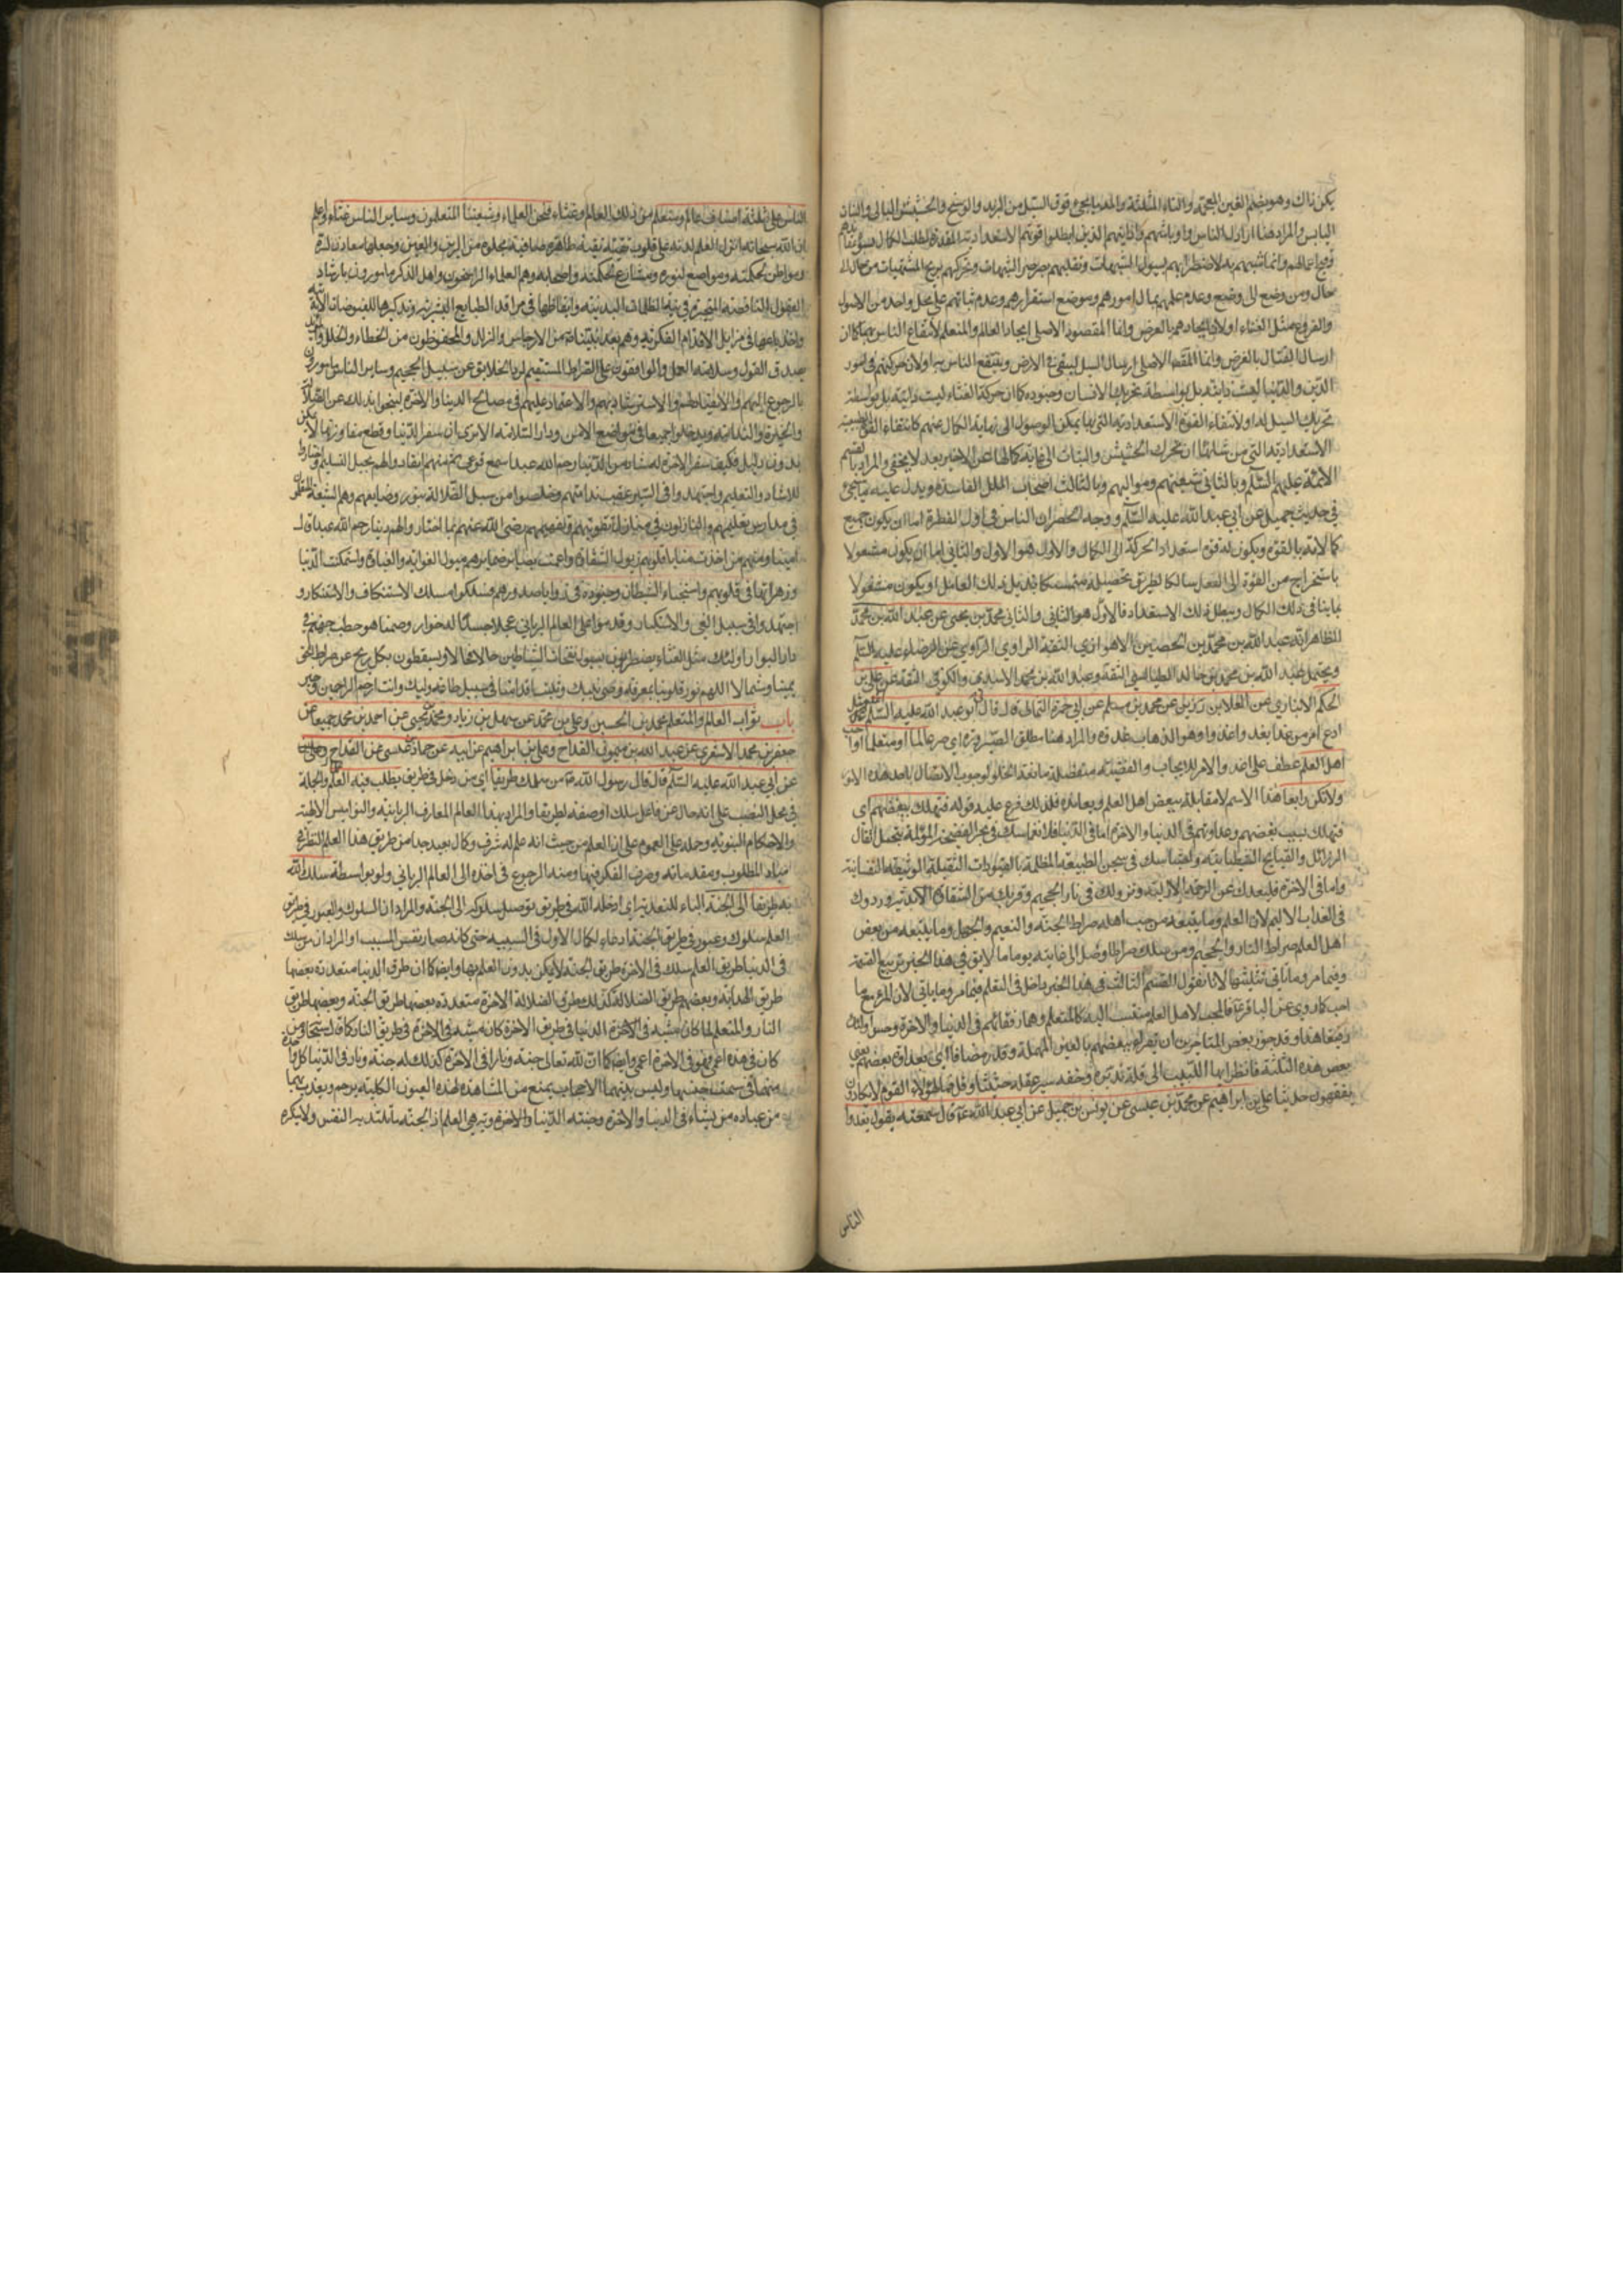 يكن ذاك وهو بضم الغين المعجمة والثاء المثلثة والمد ما يجيء فوق السيل من الزبد والوسخ والحشيش البالي والنبات
اليابس والمراد هنا اراذل الناس واوباشهم وادانيهم الذين ابطلوا قوتهم الاستعدادية المقدرة لطلب الكمال بسوء عقايدهم
وقبح اعمالهم وانما شبههم به لاضطرابهم بسيول الشبهات وتقلبهم بصرصر الشبهات وتحركهم بريح المشتهيات من حال الى
حال ومن وضع الى وضع وعدم علمهم بمال امورهم وموضع استقرارهم وعدم ثباتهم على محل واحد من الاصول
والفروع مثل الغثاء اولان ايجادهم بالعرض وانما المقصود الاصلي ايجاد العالم والمتعلم لانتفاع الناس بهما كما ان
ارسال القتال بالعرض وانما المقصد الاصلي ارسال السيل ليبقى في الارض وينتفع الناس به اولان حركتهم في امور
الدين والدنيا ليست ذاتية بل بواسطة تحريك الانسان وجنوده كما ان حركة الغثاء ليست ذاتية بل بواسطة
تحريك السيل له اولانتفاء القوة الاستعدادية التي بها يمكن الوصول الى نهاية الكمال عنهم كانتفاء القوة الطبيعية
الاستعدادية التي من شانها ان تحرك الحشيش والنبات الى غاية كمالها عن الاخير بعد لا يخفى والمراد بالقسم
الائمة عليهم السلام وبالثاني شيعتهم ومواليهم وبالثالث اصحاب الملل الفاسدة ويدل عليه ما يجيء
في حديث جميل عن ابي عبد الله عليه السلام ووجه الحصر ان الناس في اول الفطرة اما ان يكون جميع
كمالاته بالقوة ويكون له قوة استعداد الحركة الى الكمال والاول هو الاول والثاني اما ان يكون مشغولا
باستخراج من القوة الى الفعل سالكا لطريق تحصيله متمسكا بذيل ذلك العامل او يكون مشغولا
بما ينافي ذلك الكمال ويبطل ذلك الاستعداد فالاول هو الثاني والثاني محمد بن يحيى عن عبد الله بن محمد
الظاهر انه عبد الله بن محمد بن الحصين الاهوازي الثقة الراوي الراوي عن الرضا عليه السلام
ويحتمل عبد الله بن محمد بن خالد الطيالسي الثقة وعبد الله بن محمد الاسدي والكوفي الثقة عن علي بن
الحكم الانباري عن العلا بن رزين عن محمد بن مسلم عن ابي حمزة الثمالي قال قال لي ابو عبد الله عليه السلام
ادع امر من غدا يغد واغدوا وهو الذهاب غدوة والمراد هنا مطلق الصيرورة اي صر عالما او متعلما او احب
اهل العلم عطف على اغد والامر للايجاب والقضية منفصلة مانعة الخلو لوجوب الاتصال باحد هذه الامور
ولا تكن رابعا هذا الاسم لا مقابلة ببعض اهل العلم ويعانده فلذلك فرع عليه قوله فتهلك ببغضهم اى
فتهلك بسبب بغضهم وعداوتهم في الدنيا والاخرة اما في الدنيا فلانغماسك في بحر الفضيحة المؤلمة بتحمل اثقال
الرذائل والقبايح الشيطانية واحتباسك في سجن الطبيعة المظلمة بالقيودات الثقيلة الوثيقة النفسانية
واما في الاخرة فلبعدك عن الرحمة الازلية ونزولك في نار الجحيم وقربك من الشقاوة الابدية وورودك
في العذاب الاليم لان العلم وما يتبعه من حب اهله صراط الجنة والنعيم والجهل وما يتبعه من بغض
اهل العلم صراط النار والجحيم ومن سلك صراطا وصل الى غايته يوما ما لا يق في هذا الخبر تربيع القسمة
وفيما مر وما ياتي تثليثها لانا نقول القسم الثالث في هذا الخبر داخل في المتعلم فيما مر وما ياتي لان المرء مع ما
احب كما روي عن الباقر ع فالمحب لاهل العلم منتسب اليه كالمتعلم وهما رفقائهم في الدنيا والاخرة وحسن اولئك
رفيقا هذا وقد جوز بعض المتاخرين ان يقراء ببعضهم بالعين المهملة وقدر مضافا اى بعداوة بعضهم يعني
بعض هذه الثلثة فانظر ايها اللبيب الى قلة تدبره وخفة سير عقله حيثنا وقل فما لهؤلاء القوم لا يكادون
يفقهون حديثا علي بن ابراهيم عن محمد بن عيسى عن يونس عن جميل عن ابي عبد الله ع قال سمعته يقول يغدوا
الناس
الناس على ثلثة اصناف عالم ومتعلم وغثاء فنحن العلماء وشيعتنا المتعلمون وساير الناس غثاء اعلم
ان الله سبحانه انزل العلم لدنه على قلوب تقية نقية طاهرة صافية مجلوة من الريب والعين وجعلها معادن لسره
ومواطن لحكمته ومواضع لنوره ومشارع لحكمته واصحابه وهم العلماء الراسخون واهل الذكر مامورون بارشاد
العقول الناقصة المتحيرة في تيه الظلمات البدنية وايقاظها في مراقد الطبايع البشرية وتذكيرها للفيوضات الالهية
واخذ باعها في مزابل الاقدام الفكرية وهم بعد ابليتنا من الارجاس والزلل والمحفوظون من الخطاء والخلل
بصدق القول وسلامة العمل والموافقون على الصراط المستقيم لرد الخلايق عن سبيل الجحيم وساير الناس مامورون
بالرجوع اليهم والاسترشاد بهم والاعتماد عليهم في مصالح الدنيا والاخرة لينجوا بذلك عن الضلالة
والحيرة والندامة ويدخلوا جميعا في مواضع الانس ودار السلامة الا ترى ان سفر الدنيا وقطع مفاوزها لا يمكن
بدون دليل فكيف سفر الاخرة رحم الله عبدا سمع فوعى ثم منهم انقادوا لهم بحبل التسليم
للارشاد والتعليم واجتهدوا في السير عقيب ندائهم وخلصوا من سبل الضلالة بنور وصايفهم وهم الشيعة
في مدارس تعليمهم والنازلون في منازل تقويتهم وتفهيمهم رضي الله عنهم بما اختار والهم دينا رحم الله عبدا قال
امينا ومنهم من اخذت منايا قلوبهم بسيول الشقاوة واعمت بصاير ضمايرهم سيول الغواية والغباوة وتمكنت الدنيا
وزهراتها في قلوبهم واستجناء الشيطان وجنوده في زوايا صدورهم فسلكوا مسلك الاستنكاف والاستنكار و
اجتهدوا في سبيل الغي والاستكبار وقدموا على العالم الرباني عجلا جسدا له خوار وصنما هو حطب جهنم في
دار البوار اولئك مثل الغثاء يضطربون بسيول نفخات الشياطين حالا فحالا ويسقطون بكل ريح عن صراط الحق
يمينا وشمالا اللهم نور قلوبنا بمعرفة وصي نبيك وثبت اقدامنا في سبيل طاعة وليك وانت ارحم الراحمين وخير
باب ثواب العالم والمتعلم محمد بن الحسن وعلي بن محمد عن سهل بن زياد ومحمد بن يحيى عن احمد بن محمد جميعا عن
جعفر بن محمد الاشعري عن عبد الله بن ميمون القداح وعلي بن ابراهيم عن ابيه عن حماد بن عيسى عن القداح
عن ابي عبد الله عليه السلام قال قال رسول الله ص من سلك طريقا اي من دخل في طريق يطلب فيه العلم والجملة
في محل النصب على انه حال عن فاعل سلك او صفة لطريقا والمراد بهذا العالم المعارف الربانية والنواميس الالهية
والاحكام النبوية وحمله على العموم على ان العلم من حيث انه علم له شرف وكمال بعيد جدا من طريق هذا العلم النظر في
مباد المطلوب ومقدماته وصرف الفكر فيها ومنه الرجوع في اخذه الى العالم الرباني ولو بواسطة سلك الله
به طريقا الى الجنة الباء للتعدية اى ادخله الله في طريق يوصل سلوكه الى الجنة والمراد ان السلوك والعبور في طريق
العلم سلوك وعبور في طريق الجنة ادعاء لكمال الاول في السببية حتى كانه صار نفس المسبب او المراد ان من سلك
في الدنيا طريق العلم سلك في الاخرة طريق الجنة لا يمكن بدون العلم بها وايضا كما ان طرق الدنيا متعددة بعضها
طريق الهداية وبعضها طريق الضلالة كذلك طرق الاخرة متعددة بعضها طريق الجنة وبعضها طريق
النار والمتعلم لما كان مشيه في الدنيا في طريق الاخرة كان مشيه في الاخرة في طريق
كان في هذه اعمى فهو في الاخرة اعمى وايضا كما ان لله تعالى جنة ونارا في الاخرة كذلك له جنة ونار في الدنيا
منهما في سمت جنبها وليس بينهما الا حجاب يمنع من المشاهدة لهذه العيون الكليلة يرحم ويعذب بهما
من عباده من يشاء في الدنيا والاخرة وجنته الدنيا والاخرة هي العلم اذ الجنة ما تلتذ به النفس ولا يكره